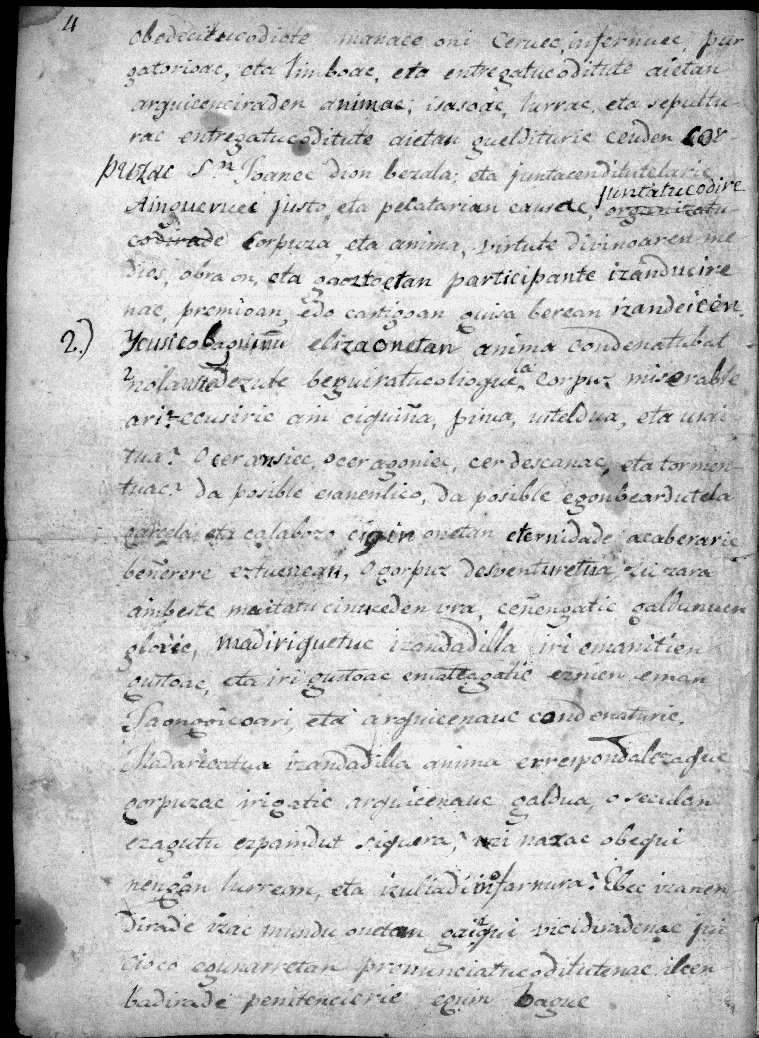 4
obedecitucodiote manace oni Ceruec, infernuec, pur
gatorioac, eta limboac, eta entregatucoditute aietan
arguiceneiraden animac; isasoac, lurrac, eta sepultu-
rac entregatucoditute aietan guelditurie ceuden cor-
puzac Sn. Joanec dion bezala; eta juntacenditutelarie
juntatucodire
Aingueruec justo, eta pecatarian eaurrec, organizatu-
codirade Corpuza, eta anima, virtute divinoaren me
dios, obra on, eta gaoztoetan participante izanducire
nac, premioan, edo castigoan guisa berean izandeicen.
2.) Ycusicobaguinu elizaonetan anima condenatubat
nola dezute beguiratucoliogue corpuz miserable
ari? ecusiric ain ciquiña, pirua, usteldua, eta usai-
tua? O cer ansiec, o cer agoniec, cer descanac, eta tormen-
tuac? da posible esanenlico, da posible egonbeardutela
carcela, eta calabozo onetan eternidade acaberaric
beñerere eztuenean, O gorpuz desventuretua, zu zara
ainbeste maitatu cinucedenura, ceñengatic galdunuen
gloric, madiriquetuc izandadilla iri emanitien
gustoac, eta iri gustoac emateagatic eznien eman
Jaongoicoari, eta arguicenauc condenaturic.
Madaricatua izandadilla anima errespondalezaque
gorpuzac irigatic arguicenauc galdua, o seculan
ezagutu ezpaindut siquera, uzi nazac obequi
nengoan lurrean, eta izuliadi infarnura? Ebec izanen
dirade izac mundu onetan gaizqui vicidiradenac jui
cioco egunarretan pronunciatucoditutenac ilcen
badirade penitencieric eguin bague